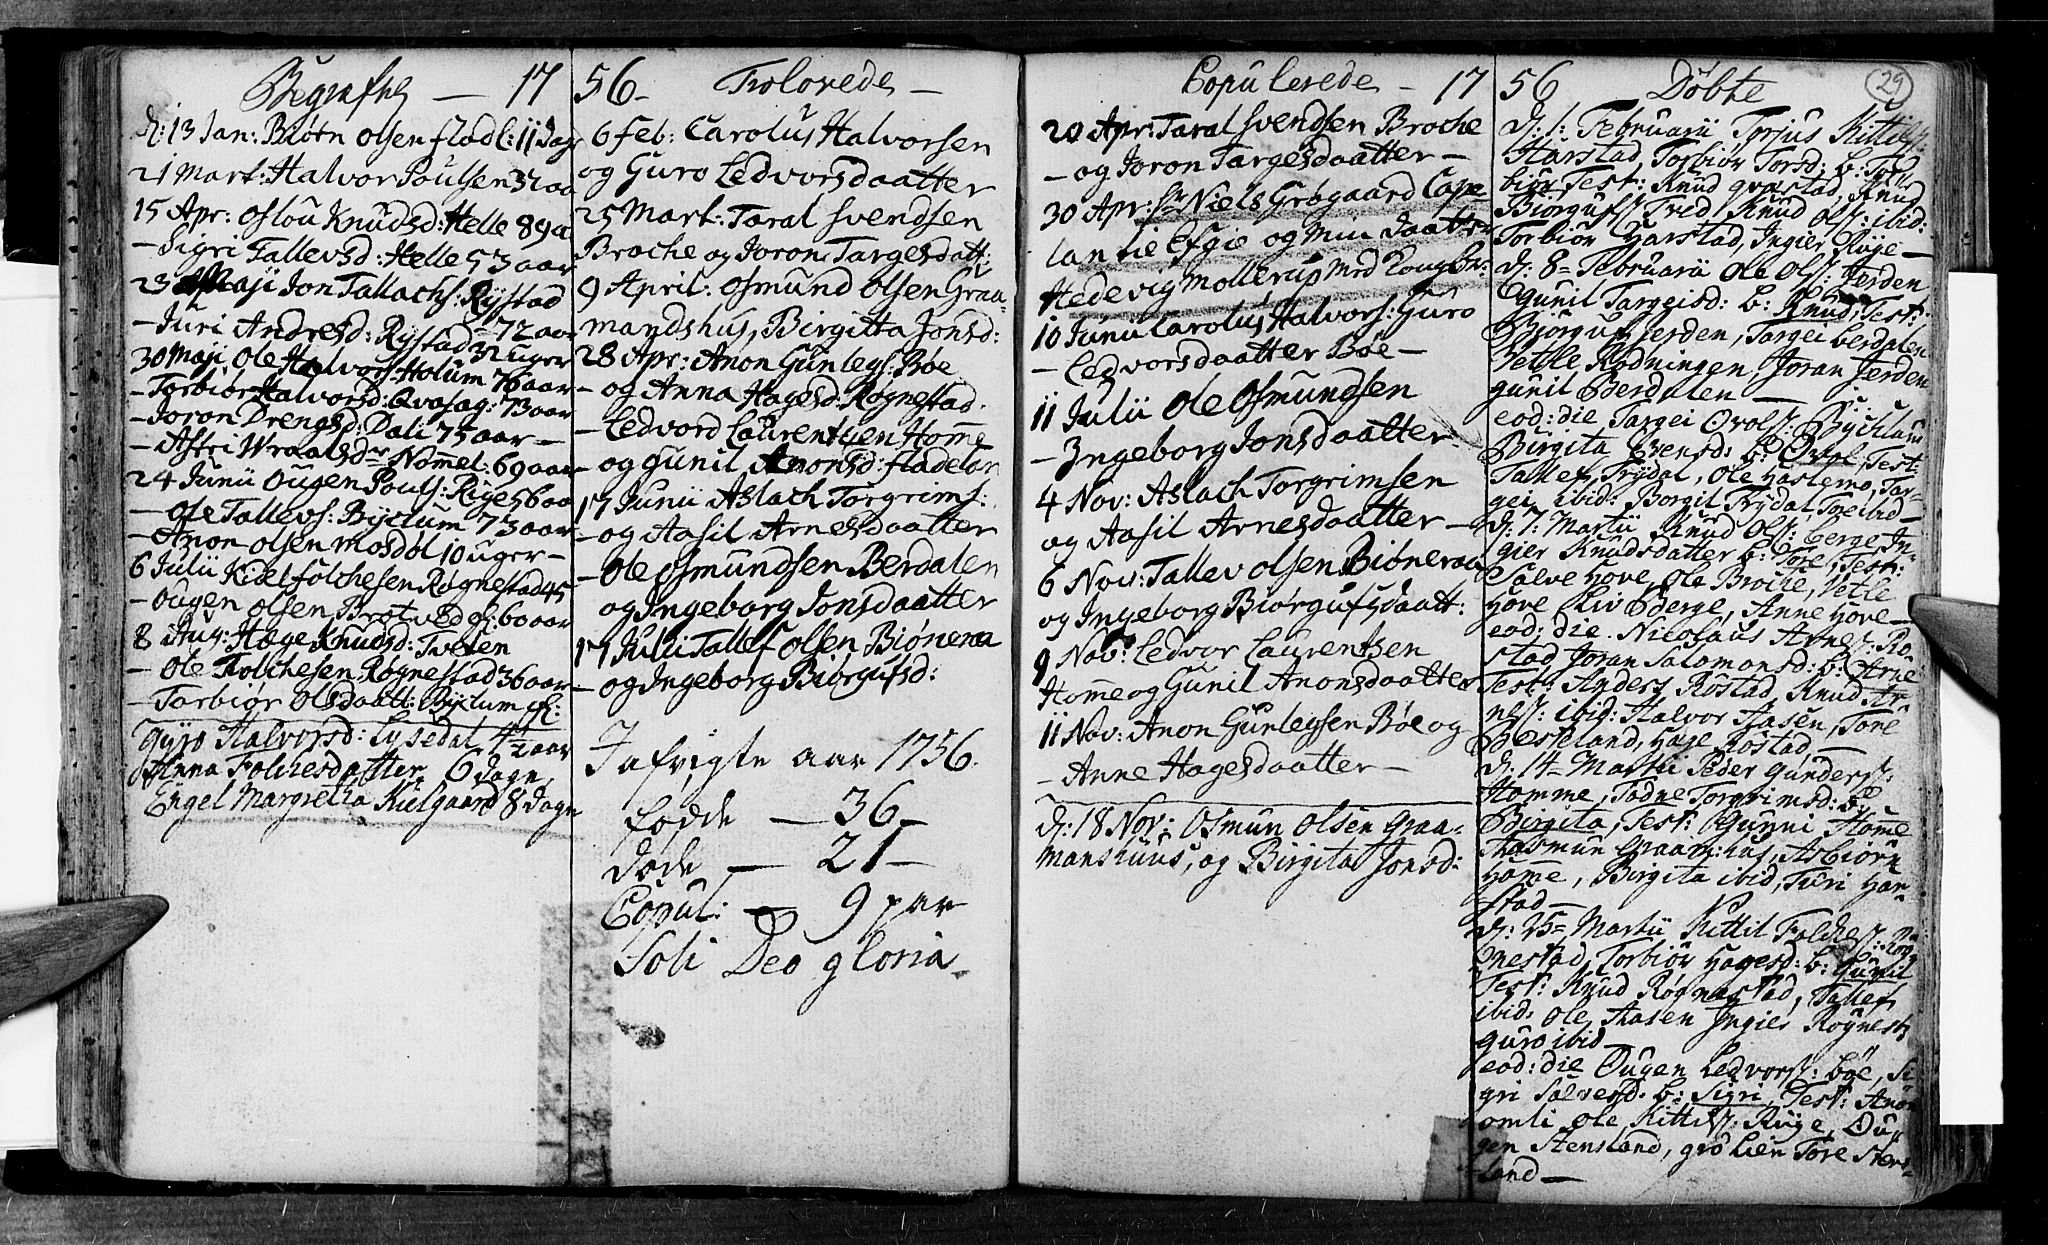 Begrafne — 17
d: 13 Jan: Biørn Olsen flad l: 11 Dage
21 Mart: Halvor Poulsen 32 aa
15 Apr: Oslou Knudsd: Helle 89 a
— Sigri Tallevsd: Helle 53 aar
23 Maji Jon Tallachs: Rÿstad
— Juri Andresd: Rÿstad 72 aar
32 uger
30 Maji Ole Halvors: Holum 76 aar
— Torbiør Halvorsd: 73 aar
— Joron Drengsd: Dali 75 aar —
— Asfri Wraalsdr Nomel: 69 aar
24 Junii Ougen Pouls: Rige 56 aa
— Ole Tallevs: Bÿclum 73 aar
— Anon Olsen Mosdøl 10 uger —
6 Julii Kiel folchesen Røgnestad 45
— Ougen Olsen Brotved 60 aar
8 Aug: Hæge Knudsd: Tveten
— Ole Folchesen Røgnestad 36 aar
— Torbiør Olsdaatt: Bÿclum
Gyro Halvorsd: Lysedal 4½ aar
Anna Folchesdatter 6 dage
Engel Margretha Kielgaard 8 dage
56 — Trolovede —
6 Feb: Carolus Halvorsen
og Guro Ledvorsdaatter
25 Mart: Taral Svendsen
Broche og Joron Targesdatt:
9 April: Osmund Olsen Graa-
mandshus, Birgitta Jonsd:
28 Apr: Anon Gunleys: Bøe
— og Anna Hagesd: Røgnestad
— Ledvord Laurentsen Home
— og Gunil Anonsd: fladelan
17 Junii Aslach Torgrims:
— og Aasil Arnesdaatter
— Ole Osmundsen Berdalen
og Ingeborg Jonsdaatter
17 Julii Tallef Olsen Biøneraa
— og Ingeborg Biørgufsd:
Jafvigte aar 1756.
fødde — 36 —
døde — 21 —
Copul: — 9 par
Soli Deo gloria
Copulerede — 17
20 Apr: Taral Svendsen Broche
— og Joron Targesdaatter —
30 Apr: Hr Niels Grøgaard Cape
lan tie Efgie og Min Daatter
Hedevig Mollerup Med Kong: br:
10 Junii Carolus Halvors: Guro
— Ledvorsdaatter Bøe —
11 Julii Ole Osmundsen
— Ingeborg Jonsdaatter —
4 Nov: Aslach Torgrimsen
og Aasil Arnesdaatter —
6 Nov: Tallev Olsen Biøneraa
og Ingeborg Biørgufsdaatt:
9 Nov: Ledvor Laurentsen
Home og Gunil Anonsdaatter
11 Nov: Anon Gunleysen Bøe og
— Anne Hagesdaatter —
d: 18 Nov: Osmun Olsen Graa-
manshuus, og Birgita Jonsd:
56 Døbte 29
d: 1: Februarii Torjus Kittils:
Harstad, Torbiør Torsd: b: Tor
biør, Test: Knud qvastad, Knud
Biørgufs: Tved, Knud Ols: ibid:
Torbiør Harstad, Ingier Ryge —
d: 8 = Februarii Ole Ols: Jerden
Gunil Targeisd: b: Knud, Test:
Biørguf Jerden, Targei berdalen
Vetle Rødningen, Joran Jerden
gunil Berdalen —
eod: die, Targei Evols: Bÿchlum
Birgita Evensd: b: Evol, Test:
Tallef Frÿdal, Ole Haslemo, Tar-
gei ibid: Borgil Frÿdal, Tore ibid —
d: 7: Martii Knud Ols: berge In-
gier Knudsdatter b: Tore, Test:
Salve Hove, Ole Broche, Vetle
Hove Liv Berge, Anne Hove —
eod: die. Nicolaus Arnes: Rø-
stad Joran Salamonsd: b: Arne
Test: Anders Røstad, Knud Ar-
nes: ibid: Halvor Aasen, Tore
Besteland, Hage Røstad —
d: 14 = Martii Peder Gunders:
Homme, Todne Torgrimsd: b:
Birgita, Test: Gunni Home
Aasmun Graam: hus, Asbiørn
Home, Birgita ibid, Turi Har-
stad —
d: 25 = Martii Kittil Folches: Røg
nestad, Torbiør Hagesd: b: Gunil
Test: Knud Røgnestad, Tallef
ibid: Ole Aasen Ingier Røgnest:
guro ibid —
eod: die Ougen Ledvors: bøe, Si
gri Salvesd: b: Sigri, Test: Anon
omli Ole Kittils: Rüge, Ou-
gen Stensland, gro Lien Tore Stens-
land —